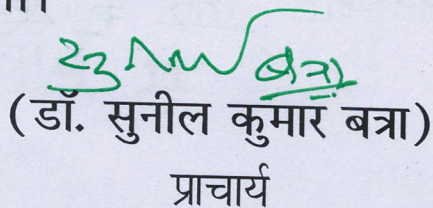 (डॉ. सुनील कुमार बत्रा)
प्राचार्य